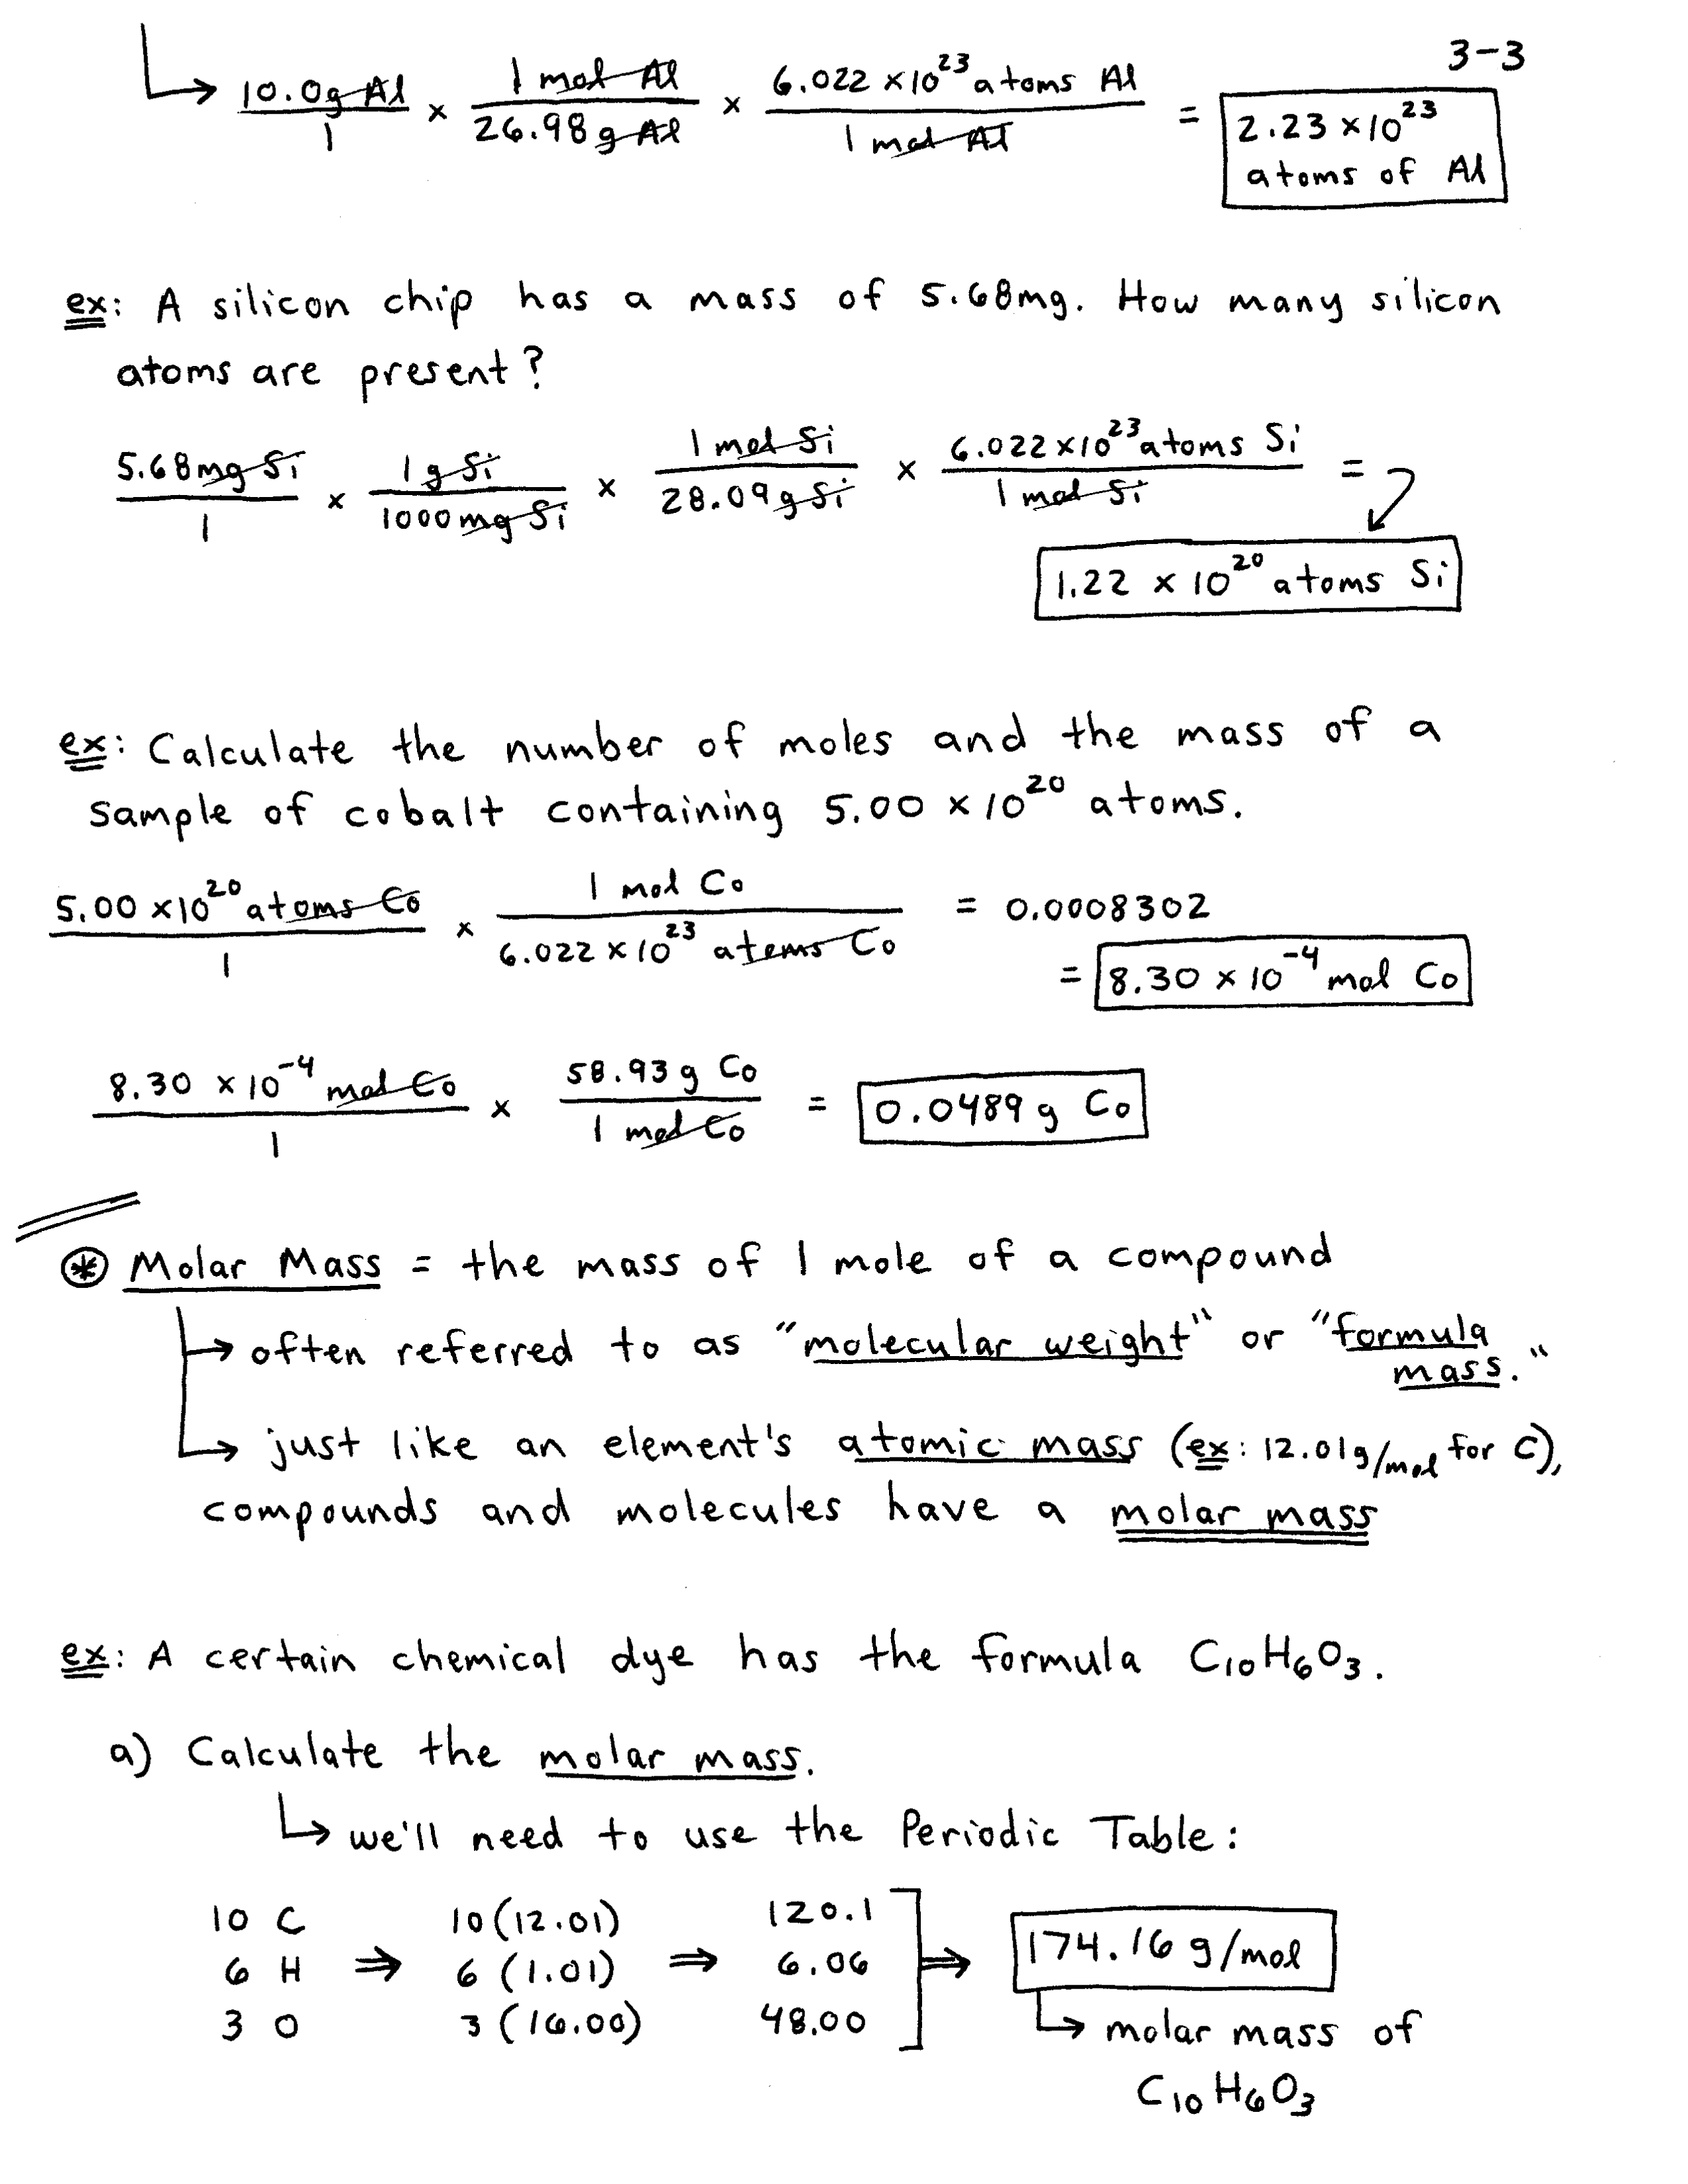 3-3
10.0g Al / 1 × 1 mol Al / 26.98 g Al × 6.022 × 10²³ atoms Al / 1 mol Al = 2.23 × 10²³ atoms of Al
ex: A silicon chip has a mass of 5.68mg. How many silicon
atoms are present?
5.68mg Si / 1 × 1 g Si / 1000 mg Si × 1 mol Si / 28.09 g Si × 6.022×10²³ atoms Si / 1 mol Si =
1.22 × 10²⁰ atoms Si
ex: Calculate the number of moles and the mass of a
sample of cobalt containing 5.00 × 10²⁰ atoms.
5.00 ×10²⁰ atoms Co / 1 × 1 mol Co / 6.022 × 10²³ atoms Co = 0.0008302
= 8.30 × 10⁻⁴ mol Co
8.30 × 10⁻⁴ mol Co / 1 × 58.93 g Co / 1 mol Co = 0.0489 g Co
⊛ Molar Mass = the mass of 1 mole of a compound
→ often referred to as "molecular weight" or "formula
mass."
→ just like an element's atomic mass (ex: 12.01g/mol for C),
compounds and molecules have a molar mass
ex: A certain chemical dye has the formula C₁₀H₆O₃.
a) Calculate the molar mass.
↳ we'll need to use the Periodic Table:
10 C 10(12.01) 120.1
6 H ⇒ 6 (1.01) ⇒ 6.06 ⇒ 174.16 g/mol
3 O 3 (16.00) 48.00
↳ molar mass of
C₁₀H₆O₃